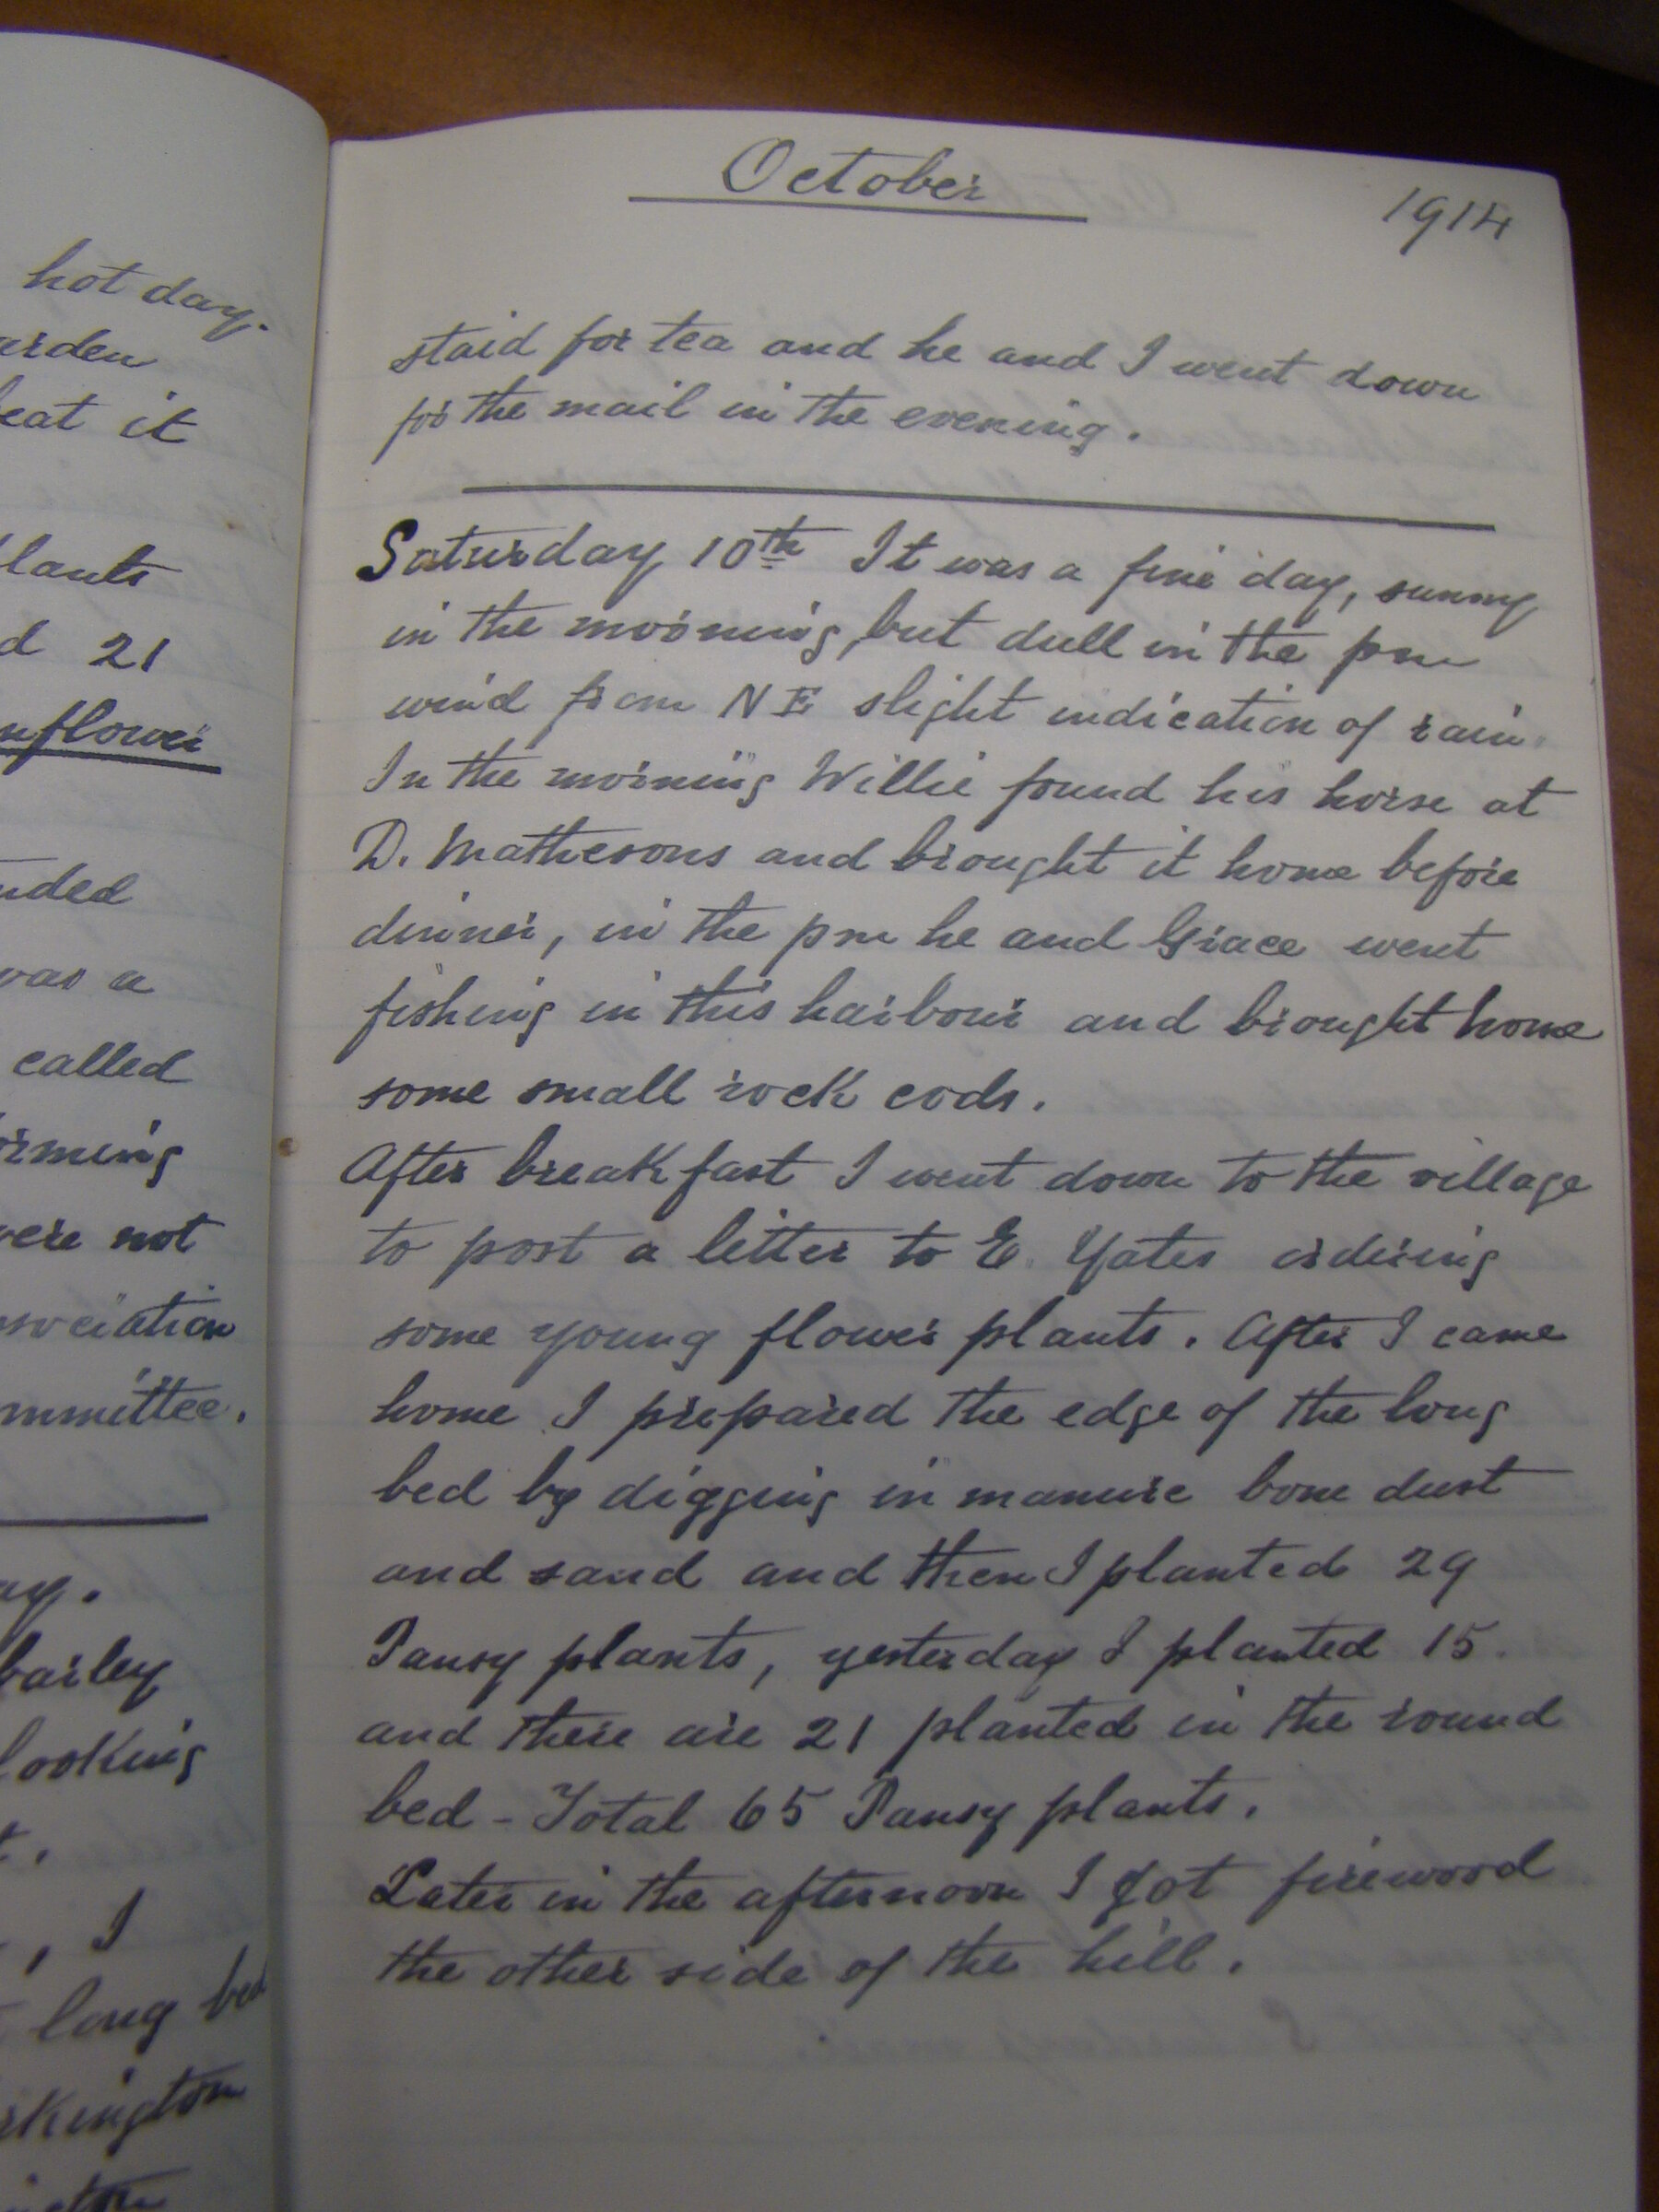 hot day.
eat it
lants
d 21
nflower
nded
was a
called
orming
were not
ssociation
mmittee.
ay.
barley
looking
t.
, I
long bed
rkington
October
1914
staid for tea and he and I went down
for the mail in the evening.
Saturday 10th It was a fine day, sunny
in the morning, but dull in the pm
wind from NE slight indication of rain.
In the morning Willie found his horse at
D. Mathesons and brought it home before
dinner, in the pm he and Grace went
fishing in this harbour and brought home
some small rock cods.
After breakfast I went down to the village
to post a letter to E. Yates ordering
some young flower plants. After I came
home I prepared the edge of the long
bed by digging in manure bone dust
and sand and then I planted 29
Pansy plants, yesterday I planted 15.
and there are 21 planted in the round
bed - Total 65 Pansy plants.
Later in the afternoon I got firewood
the other side of the hill.